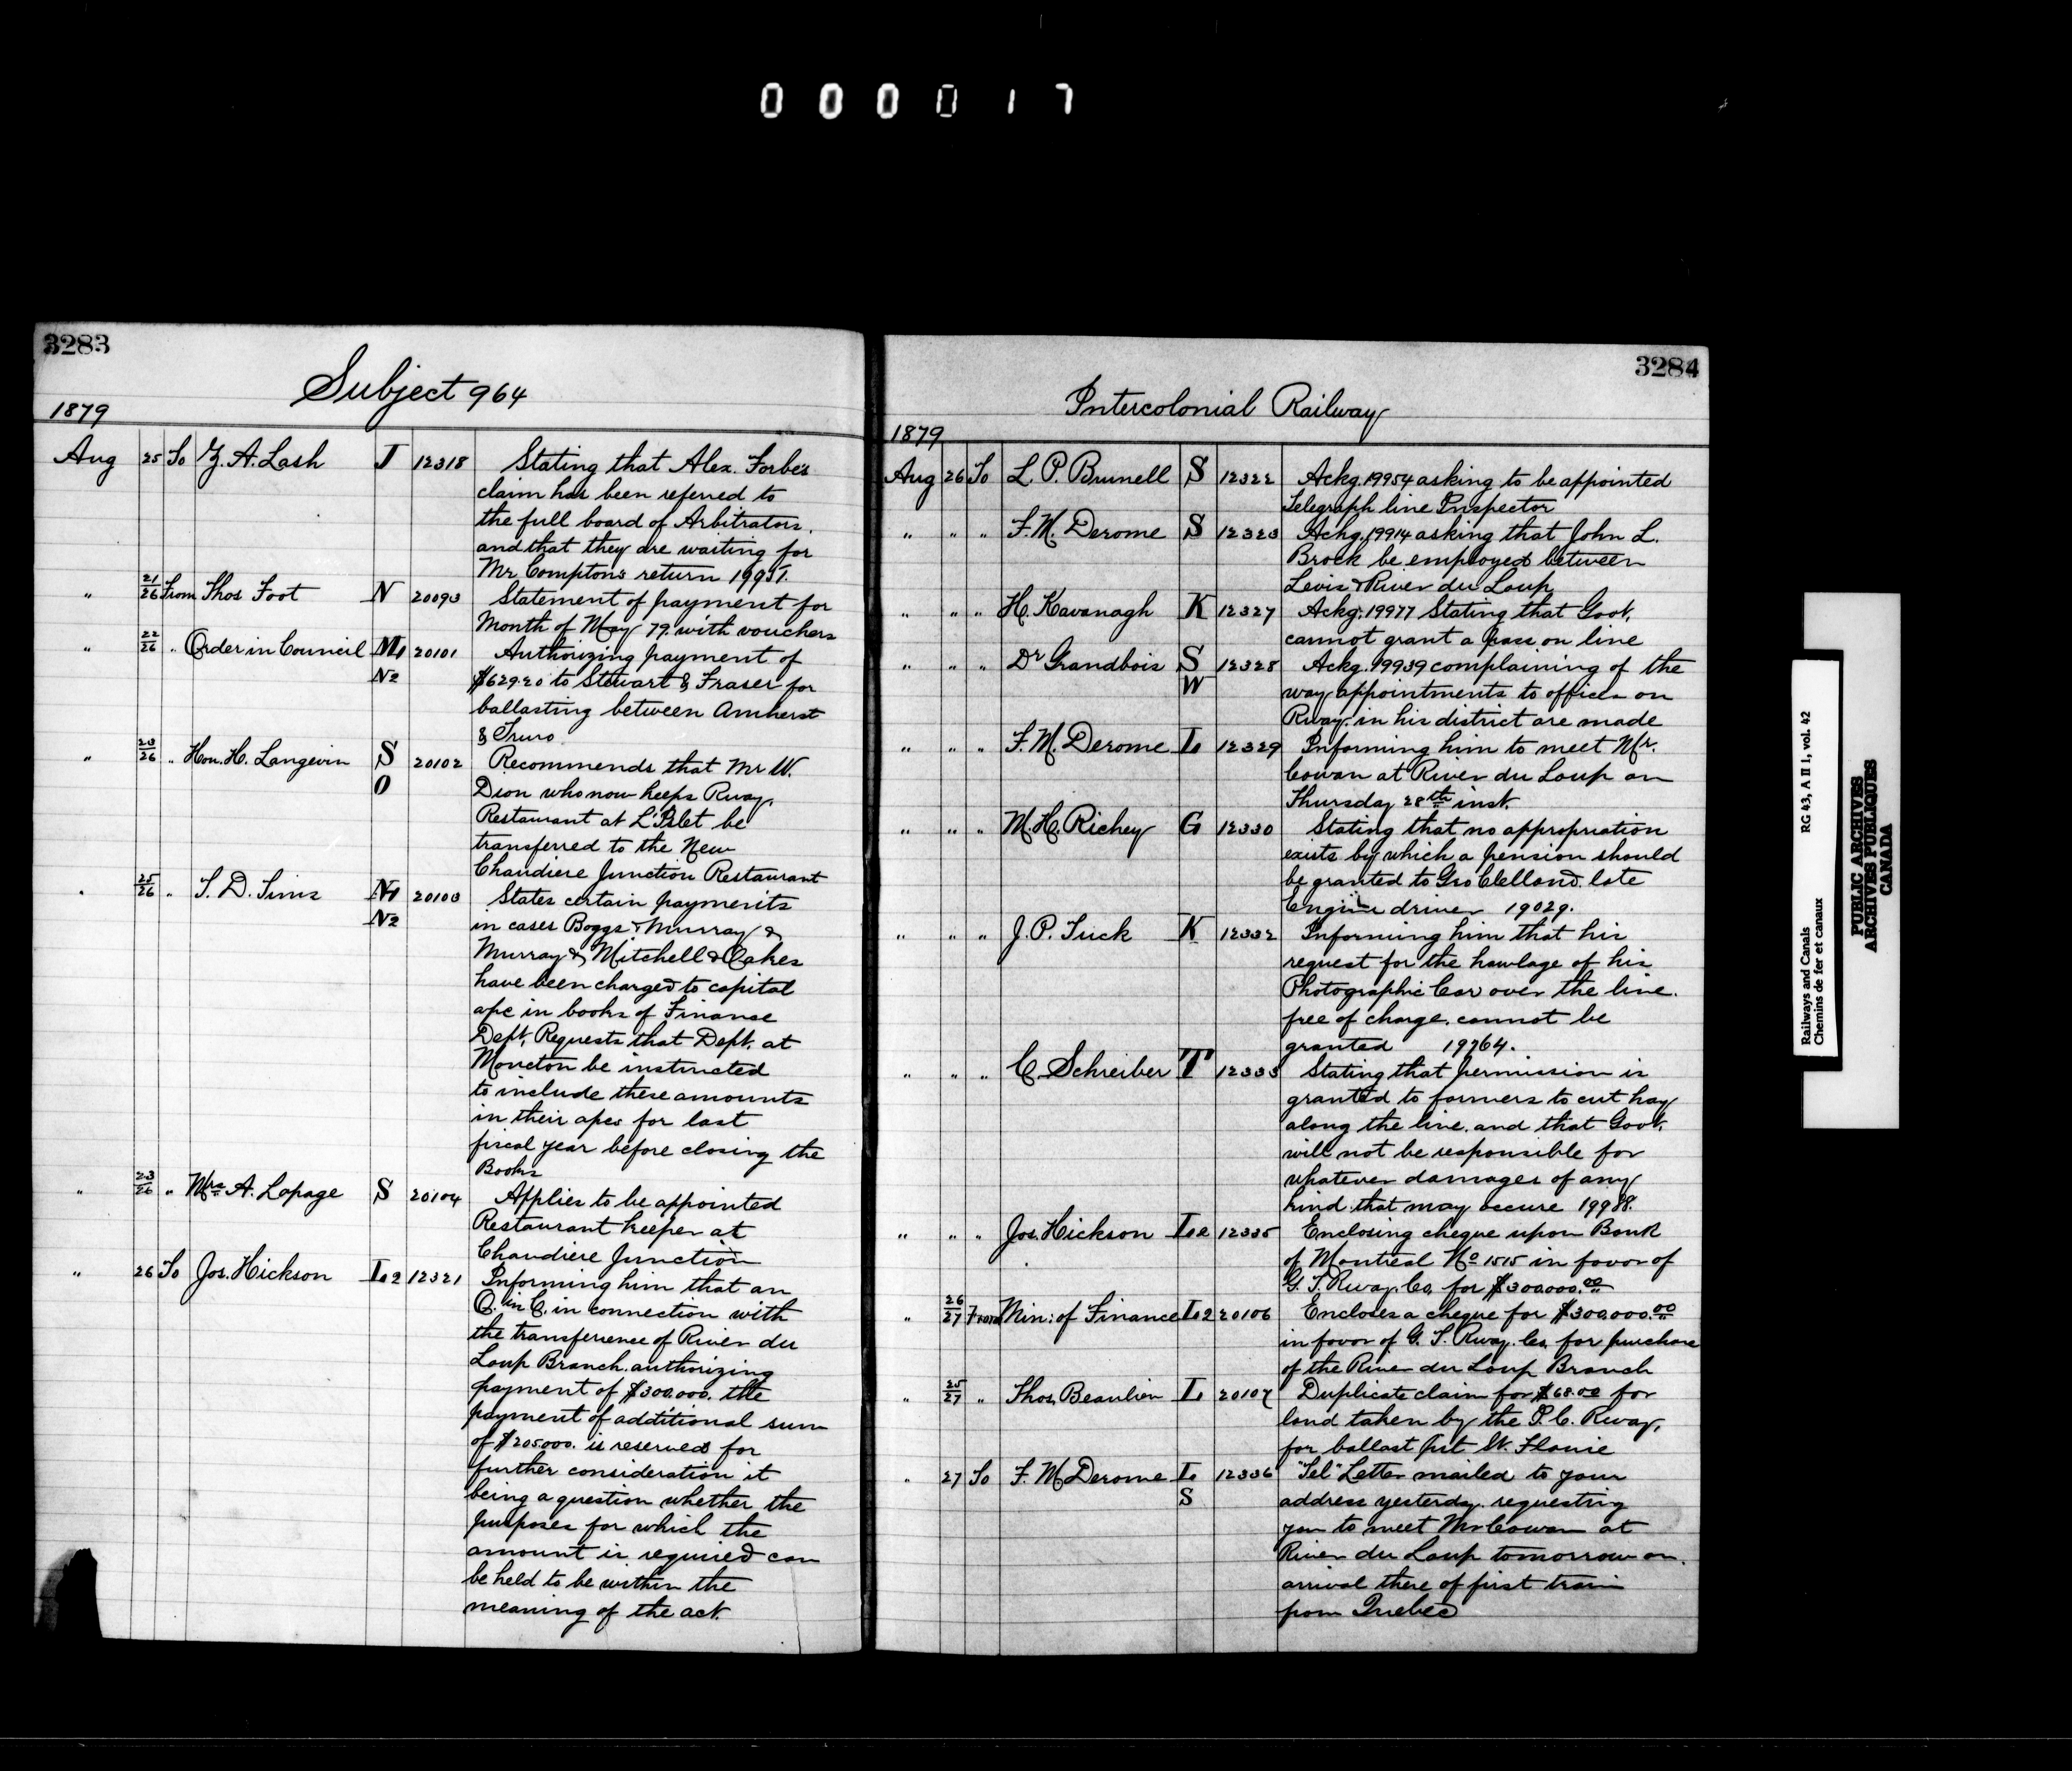 000017
3283
Subject 964
1879
Aug 25 To Z. A. Lash J 12318 Stating that Alex. Forbes
claim has been referred to
the full board of Arbitrators.
and that they are waiting for
Mr Compton's return 19951.
" 21/26 From Thos Foot N 20093 Statement of payment for
Month of May 79. with vouchers
" 22/26 " Order in Council M1 20101 Authorizing payment of
N2 $629.20 to Stewart & Fraser for
ballasting between Amherst
& Truro
" 23/26 " Hon. H. Langevin S 20102 Recommends that Mr W.
O Dion who now keeps Rway.
Restaurant at L'Islet be
transferred to the New
Chaudiere Junction Restaurant
" 25/26 " T. D. Tims N1 20103 States certain payments
N2 in cases Boggs & Murray &
Murray & Mitchell & Oakes
have been charged to capital
a/c in books of Finance
Dept. Requests that Dept. at
Moncton be instructed
to include these amounts
in their a/cs for last
fiscal year before closing the
Books
" 23/26 " Mrs A. Lepage S 20104 Applies to be appointed
Restaurant keeper at
Chaudiere Junction
" 26 To Jos. Hickson L2 12321 Informing him that an
O. in C. in connection with
the transference of River du
Loup Branch. authorizing
payment of $300.000. the
payment of additional sum
of $205.000. is reserved for
further consideration it
being a question whether the
purposes for which the
amount is required can
be held to be within the
meaning of the act.
3284
Intercolonial Railway
1879
Aug 26 To L. P. Brunell S 12322 Ackg. 19954 asking to be appointed
Telegraph line Inspector
" " " F. M. Derome S 12323 Ackg. 19914 asking that John L.
Brock be employed between
Levis & River du Loup
" " " H. Kavanagh K 12327 Ackg. 19977 Stating that Govt.
cannot grant a pass on line
" " " Dr Grandbois S 12328 Ackg. 19939 complaining of the
W way appointments to offices on
Rway. in his district are made
" " " F. M. Derome L 12329 Informing him to meet Mr.
Cowan at River du Loup on
Thursday 28th inst.
" " " M. H. Richey G 12330 Stating that no appropriation
exists by which a pension should
be granted to Geo Clelland. late
Engine driver 19029.
" " " J. P. Tuck K 12332 Informing him that his
request for the hawlage of his
Photographic Car over the line.
free of charge. cannot be
granted 19764.
" " " C. Schreiber T 12333 Stating that permission is
granted to farmers to cut hay
along the line. and that Govt.
will not be responsible for
whatever damages of any
kind that may occure 19988.
" " " Jos. Hickson L2 12335 Enclosing cheque upon Bank
of Montreal No 1515 in favor of
G. T. Rway. Co. for $300.000.00
" 26/27 From Min: of Finance L2 20106 Encloses a cheque for $300.000.00
in favor of G. T. Rway. Co. for purchase
of the River du Loup Branch
" 25/27 " Thos. Beaulieu L 20107 Duplicate claim for $68.00 for
land taken by the I. C. Rway.
for ballast pit St. Flavie
" 27 To F. M Derome L 12336 "Tel" Letter mailed to your
S address yesterday. requesting
you to meet Mr Cowan at
River du Loup tomorrow on
arrival there of first train
from Quebec
Railways and Canals RG 43, A II 1, vol. 42
Chemins de fer et canaux
PUBLIC ARCHIVES
ARCHIVES PUBLIQUES
CANADA